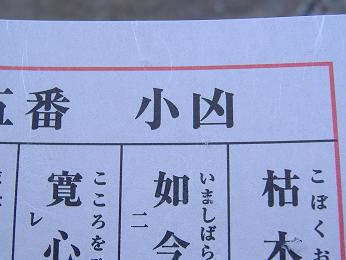 五番 小凶
こぼくお
枯木
いましばら
如今
二
こころを
寛心
レ